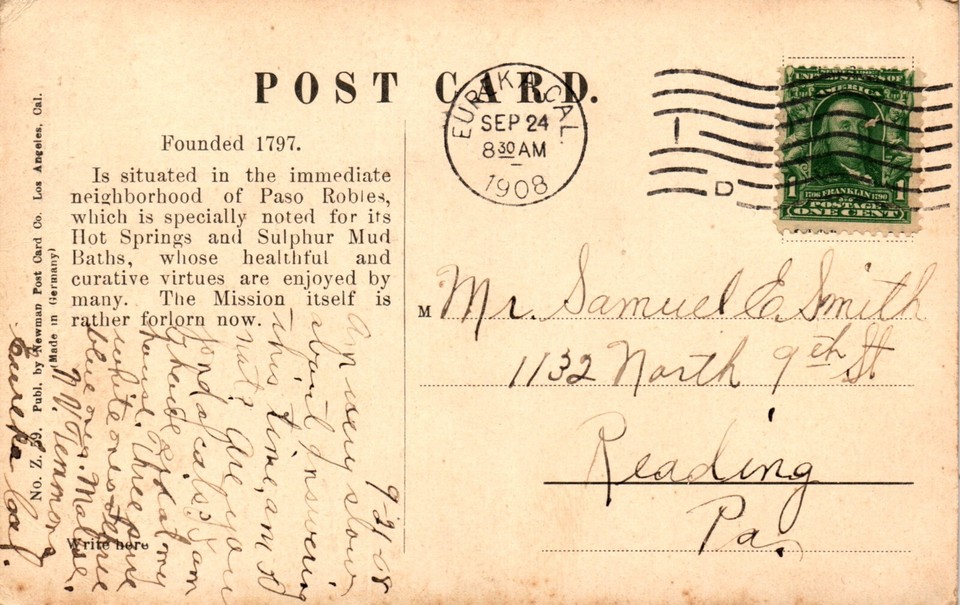 POST CARD.
Founded 1797.
Is situated in the immediate
neighborhood of Paso Robles,
which is specially noted for its
Hot Springs and Sulphur Mud
Baths, whose healthful and
curative virtues are enjoyed by
many. The Mission itself is
rather forlorn now.
No. Z. 59. Publ. by Newman Post Card Co. Los Angeles, Cal.
(Made in Germany)
Write here
9-21-08
Am very slow
about answering
this time, am I
not? Are you
fond of cats? I am
& have six at my
house. Three pure
white ones three
blue ones. Maltese.
Eureka Cal.
EUREKA, CAL.
SEP 24
8 30 AM
1908
D
UNITED STATES OF
AMERICA
1706 FRANKLIN 1790
1 1
POSTAGE
ONE CENT
M Mr. Samuel E. Smith
1132 North 9th St
Reading
Pa.